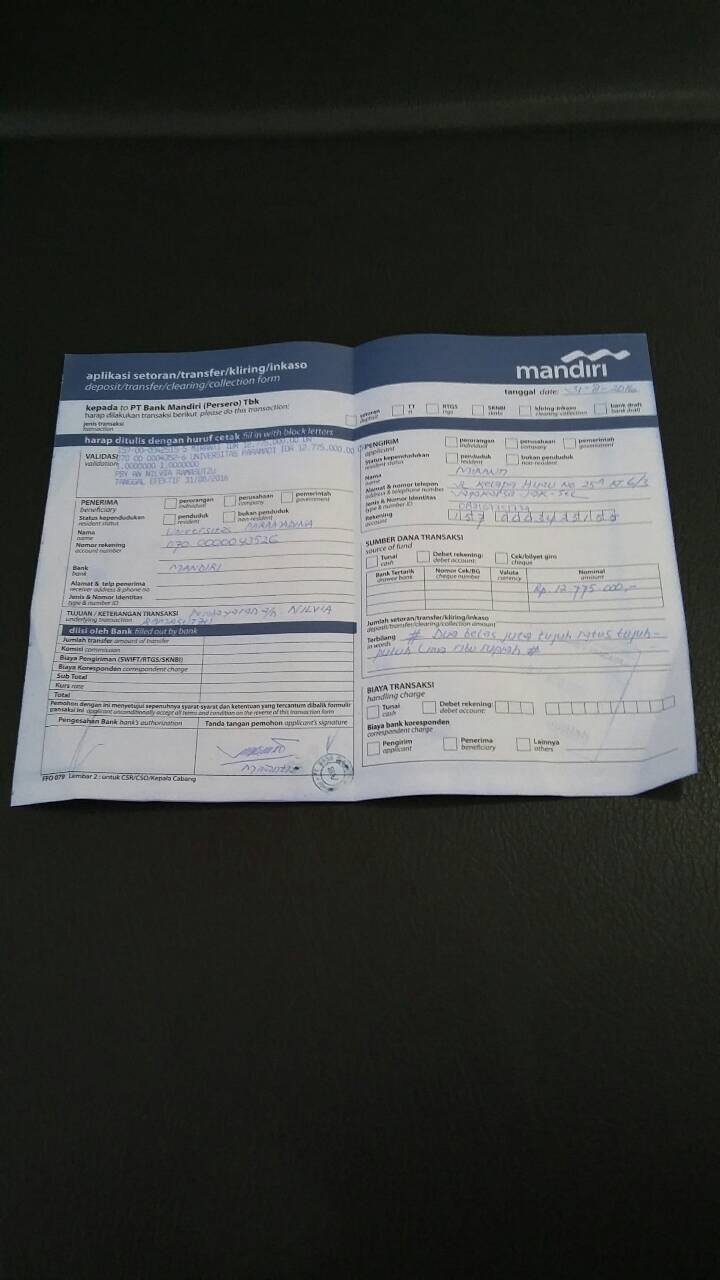 aplikasi setoran/transfer/kliring/inkaso
deposit/transfer/clearing/collection form
mandiri
tanggal date: 31-8-2016
kepada to PT Bank Mandiri (Persero) Tbk
harap dilakukan transaksi berikut please do this transaction:
jenis transaksi
transaction
setoran
deposit
TT
RTGS
SKNBI
kliring-inkaso
clearing-collection
bank draft
bank draft
harap ditulis dengan huruf cetak fill in with block letters
VALIDASI
validation
UNIVERSITAS PARAMADI IDR 12.775.000.00
1.0000000 1.0000000
PBY AN NILVIA
TANGGAL EFEKTIF 31/08/2016
PENERIMA
beneficiary
perorangan
individual
perusahaan
company
pemerintah
government
Status kependudukan
resident status
penduduk
resident
bukan penduduk
non-resident
Nama
name
Universitas PARAMADINA
Nomor rekening
account number
Bank
bank
MANDIRI
Alamat & telp penerima
receiver address & phone no
Jenis & Nomor Identitas
type & number ID
TUJUAN / KETERANGAN TRANSAKSI
underlying transaction
Pembayaran NILVIA
diisi oleh Bank filled out by bank
Jumlah transfer amount of transfer
Komisi commission
Biaya Pengiriman (SWIFT/RTGS/SKNBI)
Biaya Koresponden correspondent charge
Sub Total
Kurs rate
Total
Pemohon dengan ini menyetujui sepenuhnya syarat-syarat dan ketentuan yang tercantum dibalik formulir
transaksi ini applicant unconditionally accept all terms and condition on the reverse of this transaction form
Pengesahan Bank bank's authorization
Tanda tangan pemohon applicant's signature
FFO 079 Lembar 2 : untuk CSR/CSO/Kepala Cabang
PENGIRIM
applicant
perorangan
individual
perusahaan
company
pemerintah
government
Status kependudukan
resident status
penduduk
resident
bukan penduduk
non-resident
Nama
name
Alamat & nomor telepon
address & telephone number
Jenis & Nomor Identitas
type & number ID
Rekening
account
SUMBER DANA TRANSAKSI
source of fund
Tunai
cash
Debet rekening:
debet account:
Cek/bilyet giro
cheque
Bank Tertarik
drawee bank
Nomor Cek/BG
cheque number
Valuta
currency
Nominal
amount
Rp. 12.775.000,-
Jumlah setoran/transfer/kliring/inkaso
deposit/transfer/clearing/collection amount
Terbilang
in words
# Dua belas juta tujuh ratus tujuh-
puluh lima ribu rupiah #
BIAYA TRANSAKSI
handling charge
Tunai
cash
Debet rekening:
debet account:
Biaya bank koresponden
correspondent charge
Pengirim
applicant
Penerima
beneficiary
Lainnya
others